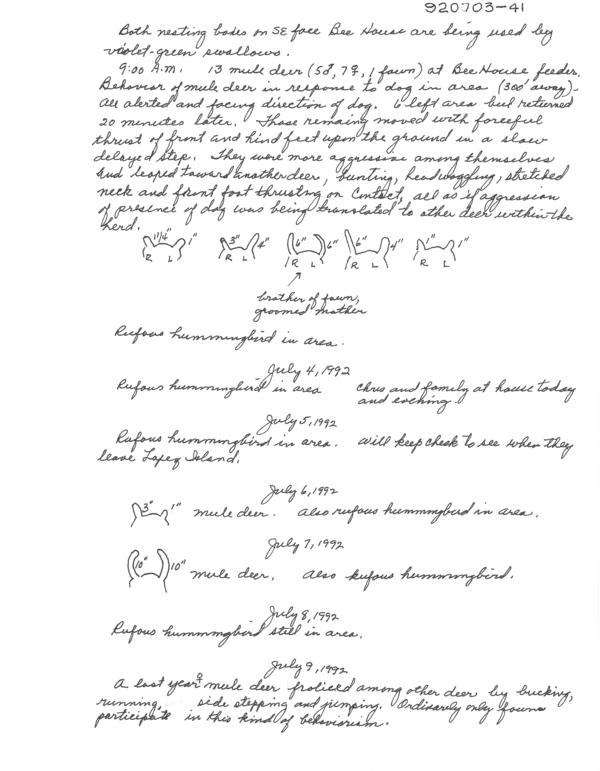 920703-41
Both nesting boxes on SE face Bee House are being used by
violet-green swallows.
9:00 A.M. 13 mule deer (5♂, 7♀, 1 fawn) at Bee House feeder.
Behavior of mule deer in response to dog in area (300' away)-
all alerted and facing direction of dog. 6 left area but returned
20 minutes later. Those remaining moved with forceful
thrust of front and hind feet upon the ground in a slow
delayed step. They were more aggressive among themselves
and leaped toward another deer, bunting, headwaggling, stretched
neck and front foot thrusting on contact, all as if aggression
of presence of dog was being translated to other deer within the
herd.
1 1/4" 1" 3" 4" 6" 6" 6" 4" 1" 1"
R L R L R L R L R L
brother of fawn,
groomed mother
Rufous hummingbird in area.
July 4, 1992
Rufous hummingbird in area Chris and family at house today
and evening.
July 5, 1992
Rufous hummingbird in area. Will keep check to see when they
leave Lopez Island.
July 6, 1992
3" 1" mule deer. Also rufous hummingbird in area.
July 7, 1992
10" 10" mule deer. Also rufous hummingbird.
July 8, 1992
Rufous hummingbird still in area.
July 9, 1992
A last year ♀ mule deer frolicked among other deer by bucking,
running, side stepping and jumping. Ordinarily only fawns
participate in this kind of behaviorism.